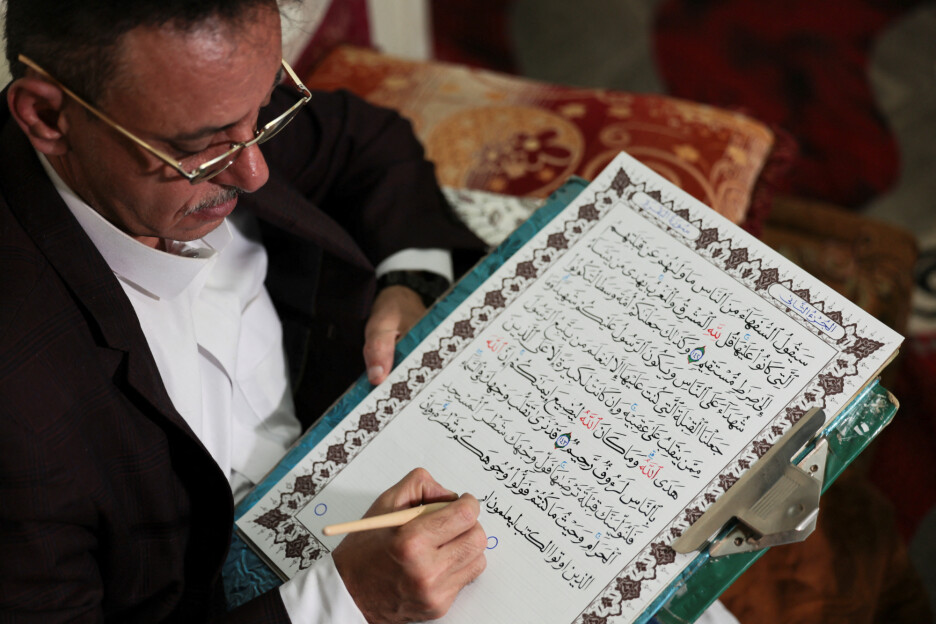 سورة البقرة
الجزء الثاني
سَيَقُولُ ٱلسُّفَهَآءُ مِنَ ٱلنَّاسِ مَا وَلَّىٰهُمْ عَن قِبْلَتِهِمُ
ٱلَّتِى كَانُوا۟ عَلَيْهَا قُل لِّلَّهِ ٱلْمَشْرِقُ وَٱلْمَغْرِبُ يَهْدِى مَن يَشَآءُ
إِلَىٰ صِرَٰطٍ مُّسْتَقِيمٍ ١٤٢ وَكَذَٰلِكَ جَعَلْنَٰكُمْ أُمَّةً وَسَطًا لِّتَكُونُوا۟
شُهَدَآءَ عَلَى ٱلنَّاسِ وَيَكُونَ ٱلرَّسُولُ عَلَيْكُمْ شَهِيدًا وَمَا
جَعَلْنَا ٱلْقِبْلَةَ ٱلَّتِى كُنتَ عَلَيْهَآ إِلَّا لِنَعْلَمَ مَن يَتَّبِعُ ٱلرَّسُولَ
مِمَّن يَنقَلِبُ عَلَىٰ عَقِبَيْهِ وَإِن كَانَتْ لَكَبِيرَةً إِلَّا عَلَى ٱلَّذِينَ
هَدَى ٱللَّهُ وَمَا كَانَ ٱللَّهُ لِيُضِيعَ إِيمَٰنَكُمْ إِنَّ ٱللَّهَ
بِٱلنَّاسِ لَرَءُوفٌ رَّحِيمٌ ١٤٣ قَدْ نَرَىٰ تَقَلُّبَ وَجْهِكَ فِى ٱلسَّمَآءِ
فَلَنُوَلِّيَنَّكَ قِبْلَةً تَرْضَىٰهَا فَوَلِّ وَجْهَكَ شَطْرَ ٱلْمَسْجِدِ
ٱلْحَرَامِ وَحَيْثُ مَا كُنتُمْ فَوَلُّوا۟ وُجُوهَكُمْ شَطْرَهُۥ وَإِنَّ
ٱلَّذِينَ أُوتُوا۟ ٱلْكِتَٰبَ لَيَعْلَمُونَ أَنَّ